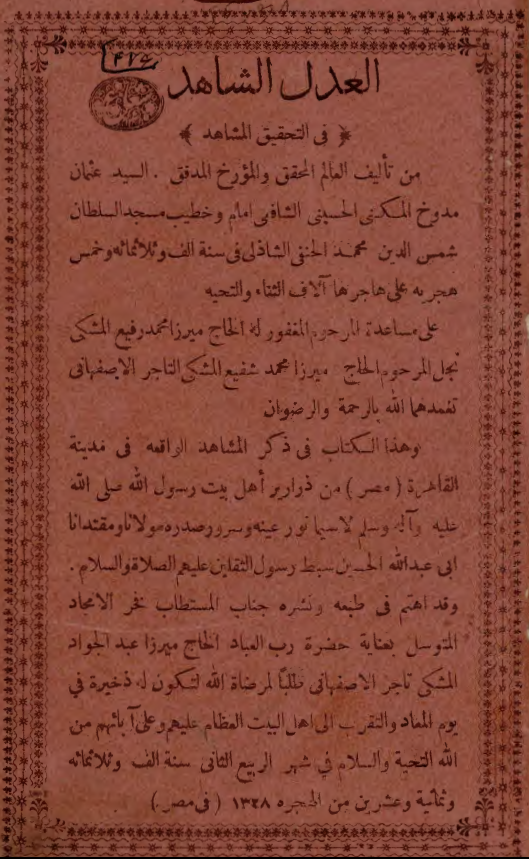 ٤٢٤
العدل الشاهد
﴿ فى التحقيق المشاهد ﴾
من تأليف العالم المحقق والمؤرخ المدقق . السيد عثمان
مدوخ المكنى الحسينى الشافعى امام وخطيب مسجد السلطان
شمس الدين محمد الحنفى الشاذلى فى سنة الف وثلاثمائه وخمس
هجريه على هاجرها آلاف الثناء والتحيه
على مساعدة المرحوم المغفور له الحاج ميرزا محمد رفيع المشكى
نجل المرحوم الحاج ميرزا محمد شفيع المشكى التاجر الاصفهانى
تغمدهما الله بالرحمة والرضوان
وهذا الكتاب فى ذكر المشاهد الواقعه فى مدينة
القاهرة ( مصر ) من ذرارير أهل بيت رسول الله صلى الله
عليه وآله وسلم لاسيما نور عينه وسرور صدره مولانا ومقتدانا
ابى عبدالله الحسين سبط رسول الثقلين عليهم الصلاة والسلام .
وقد اهتم فى طبعه ونشره جناب المستطاب فخر الامجاد
المتوسل بعناية حضرة رب العباد الحاج ميرزا عبد الجواد
المشكى تاجر الاصفهانى طلبًا لمرضاة الله لتكون له ذخيرة في
يوم المعاد والتقرب الى اهل البيت العظام عليهم وعلى آبائهم من
الله التحية والسلام في شهر الربيع الثانى سنة الف وثلاثمائه
وثمانية وعشرين من الهجره ١٣٢٨ ( فى مصر )